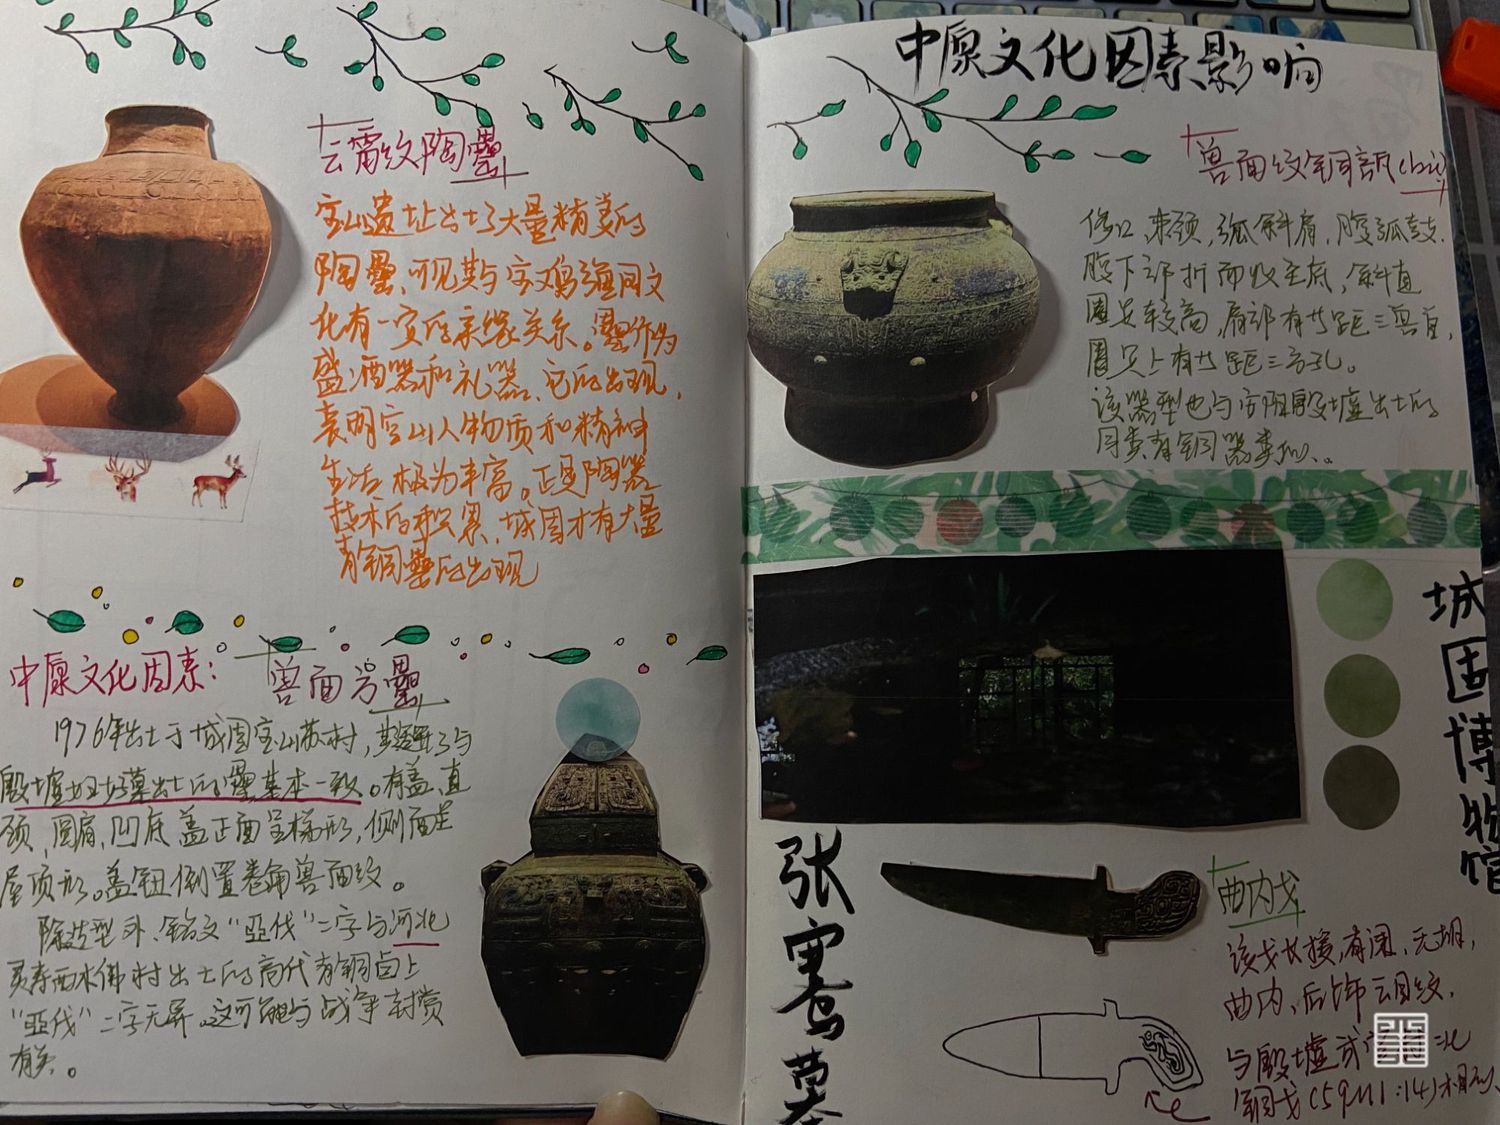 云雷纹陶罍
宝山遗址出土了大量精美的
陶罍,可见其与宝鸡强国文
化有一定的亲缘关系。罍作为
盛酒器和礼器,它的出现,
表明宝山人物质和精神
生活极为丰富。正是陶器
技术的积累,城固才有大量
青铜罍的出现
中原文化因素:
兽面纹罍
1976年出土于城固宝山苏村,其器形与
殷墟妇好墓出土的罍基本一致。有盖,直
颈,圆肩,凹底,盖正面呈梯形,侧面呈
屋顶形。盖钮倒置卷角兽面纹。
除造型外,铭文“亚伐”二字与河北
灵寿西木佛村出土的商代青铜卣上
“亚伐”二字无异。这可能与战争封赏
有关。
中原文化因素影响
兽面纹铜
侈口,束颈,弧斜肩,腹弧鼓,
腹下部折而收至底,斜直
圈足较高,肩部有等距三兽首,
圈足上有等距三方孔。
该器型也与安阳殷墟出土的
同类青铜器类似。
城固博物馆
张骞墓
曲内戈
该戈长援,有阑,无胡,
曲内,后饰云目纹,
与殷墟武官北
铜戈(59M1:14)相似